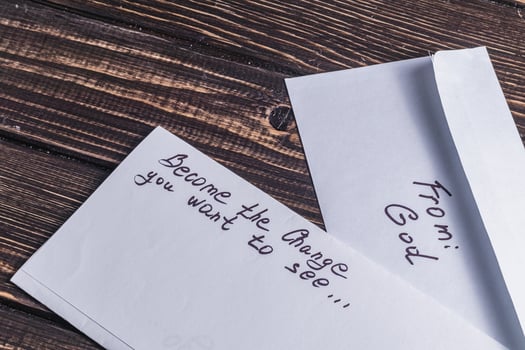 Become the Change
you want to see...
From:
God